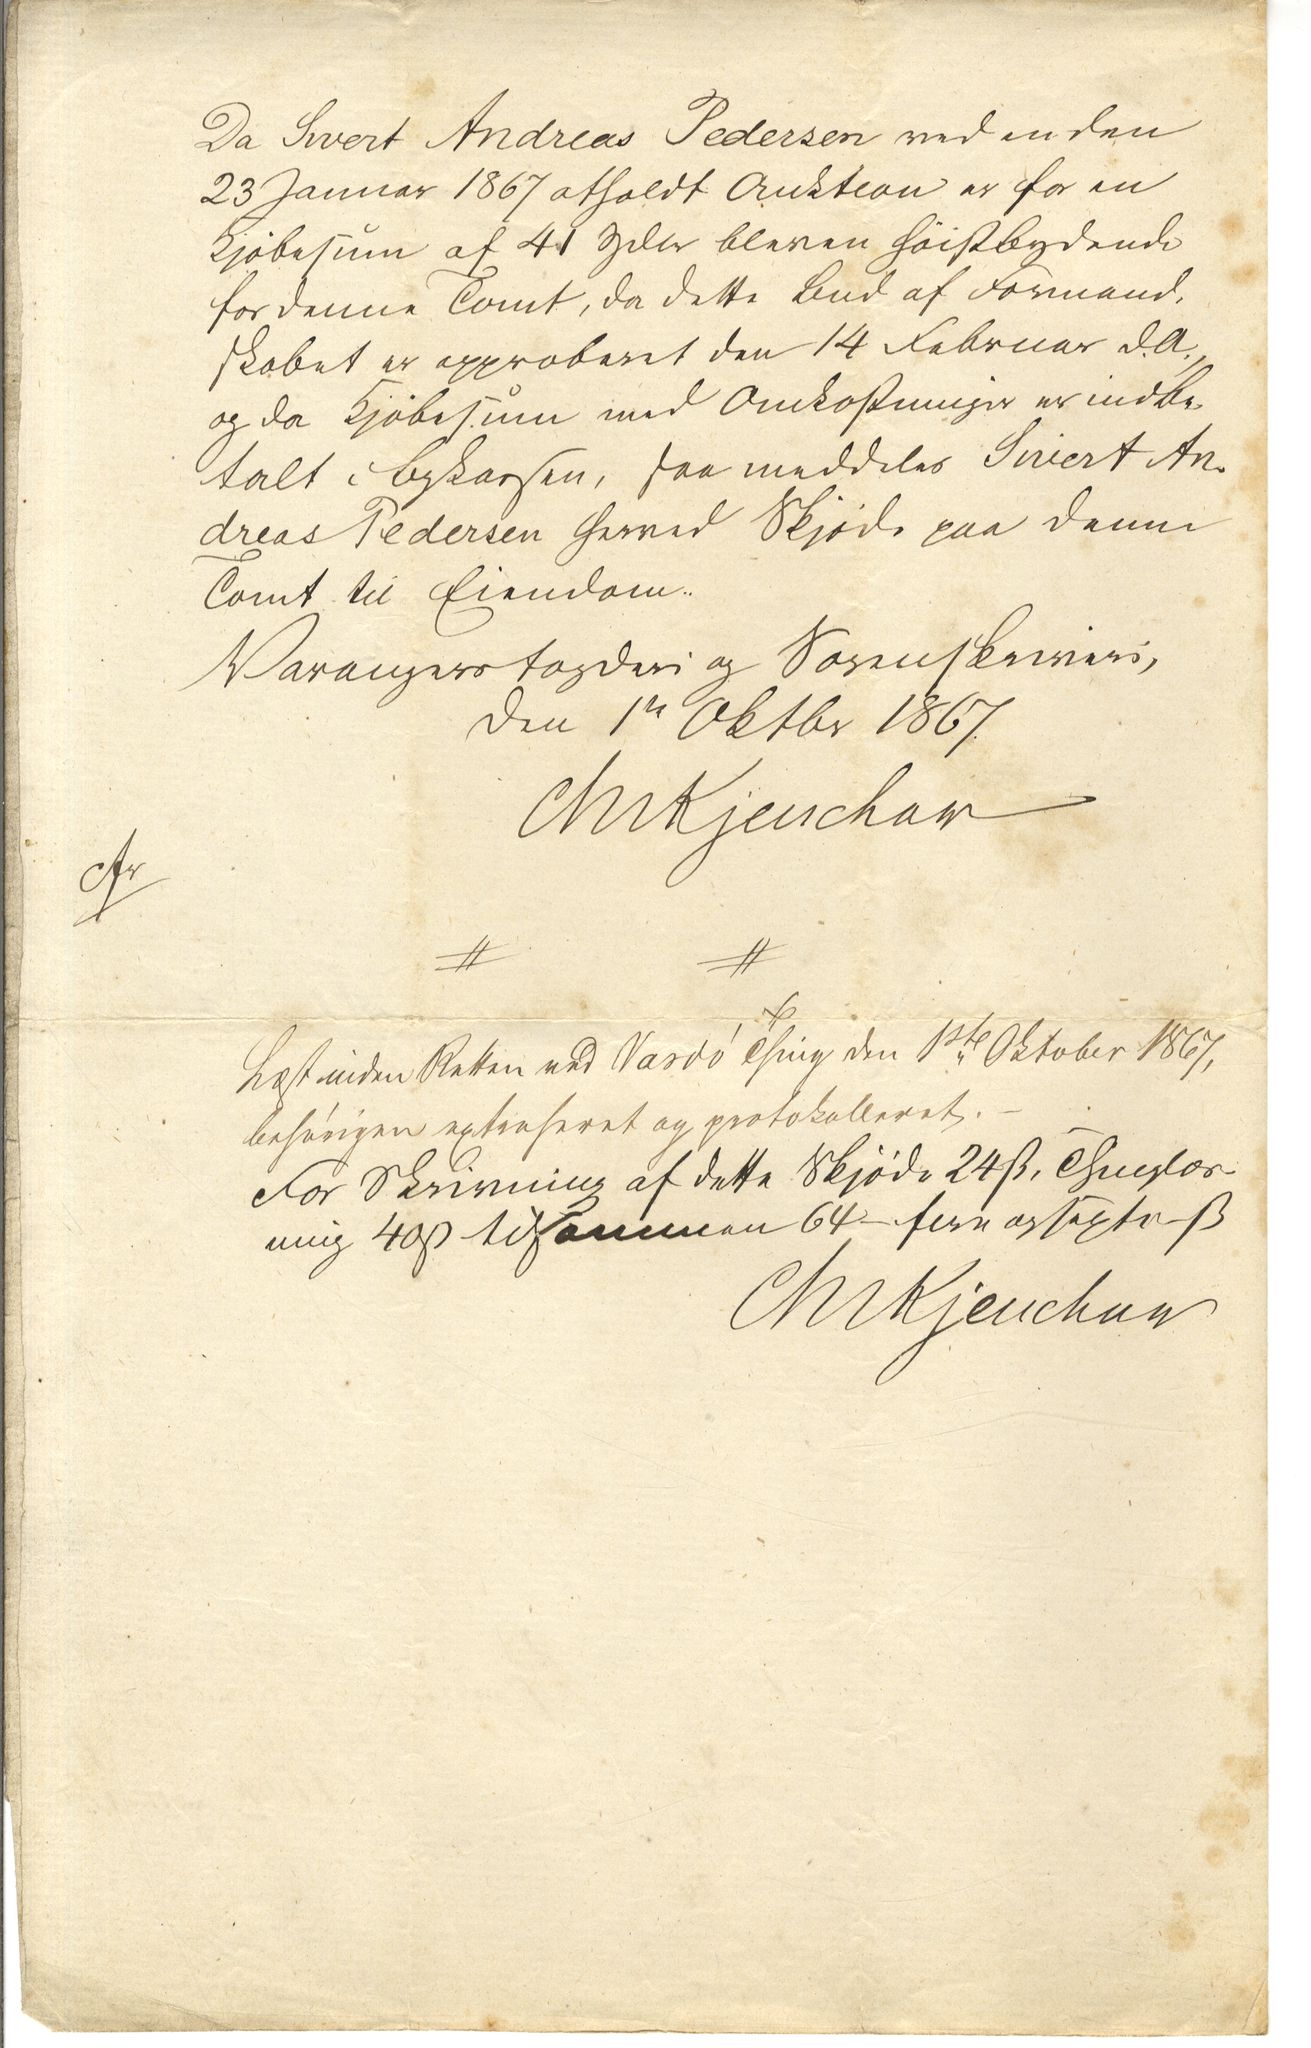 Da Sivert Andreas Pedersen ved en den
23 Januar 1867 afholdt Auktion er for en
Kjøbesum af 41 Spdlr bleven høistbydende
for denne Tomt, da dette Bud af Formand-
skabet er approberet den 14 Februar d.A.,
og da Kjøbesum med Omkostninger er indbe-
talt i Bykassen, saa meddeles Sivert An-
dreas Pedersen herved Skjøde paa denne
Tomt til Eiendom.
Varangers fogderi og Sorenskriveri,
den 1ste Oktbr 1867.
Kjerschow
Læst inden Retten ved Vardö Thing den 1ste Oktober 1867,
behörigen extraheret og protokolleret. -
For Skrivning af dette Skjöde 24ß, Thinglæs-
ning 40ß tilsammen 64 - fire og sexti - ß
Kjerschow